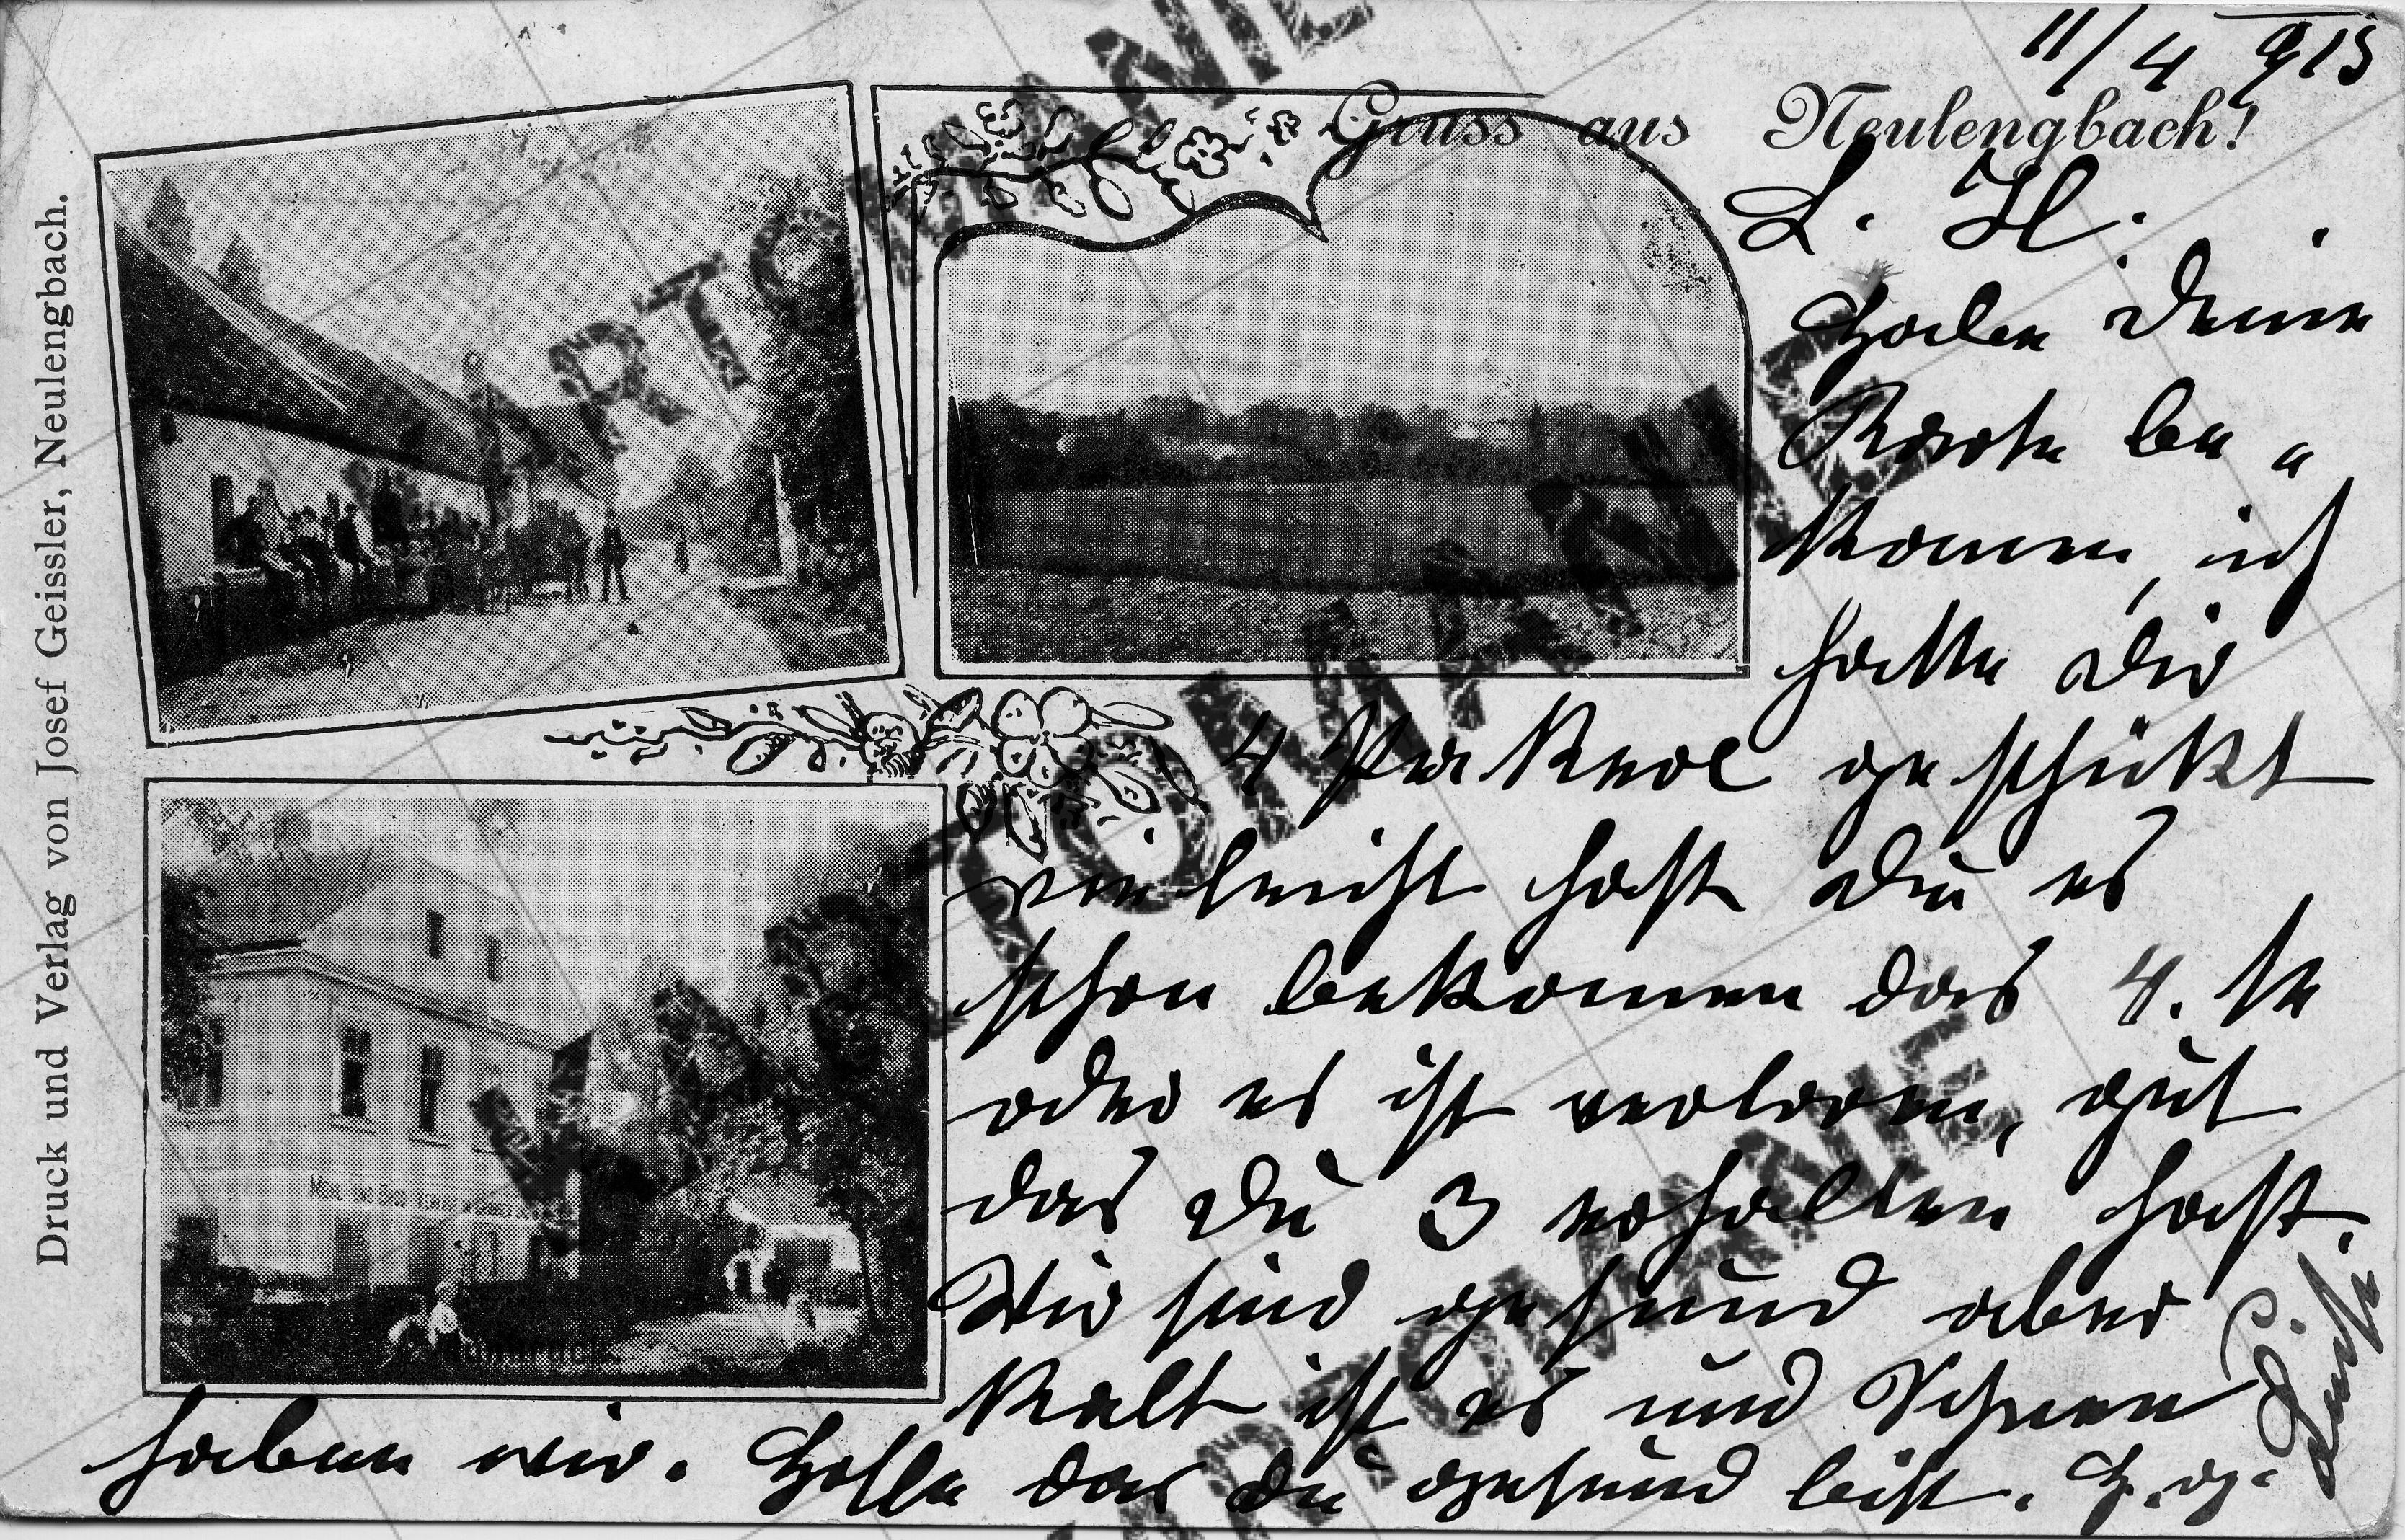 11/4 915
Gruss aus Neulengbach!
L. H.
Habe deine
Karte be„
komen, ich
hatte dir
4 Perkerl geschükt
vieleicht hast du es
schon bekomen das 4. te
oder es ist verloren, gut
das du 3 erhalten hast.
Wir sind gesund aber
kalt ist es und Schnee
haben wir. Hoffe das du gesund bist. H. g.
Luise
Druck und Verlag von Josef Geissler, Neulengbach.
CARTOMANIE
CARTOMANIE
CARTOMANIE